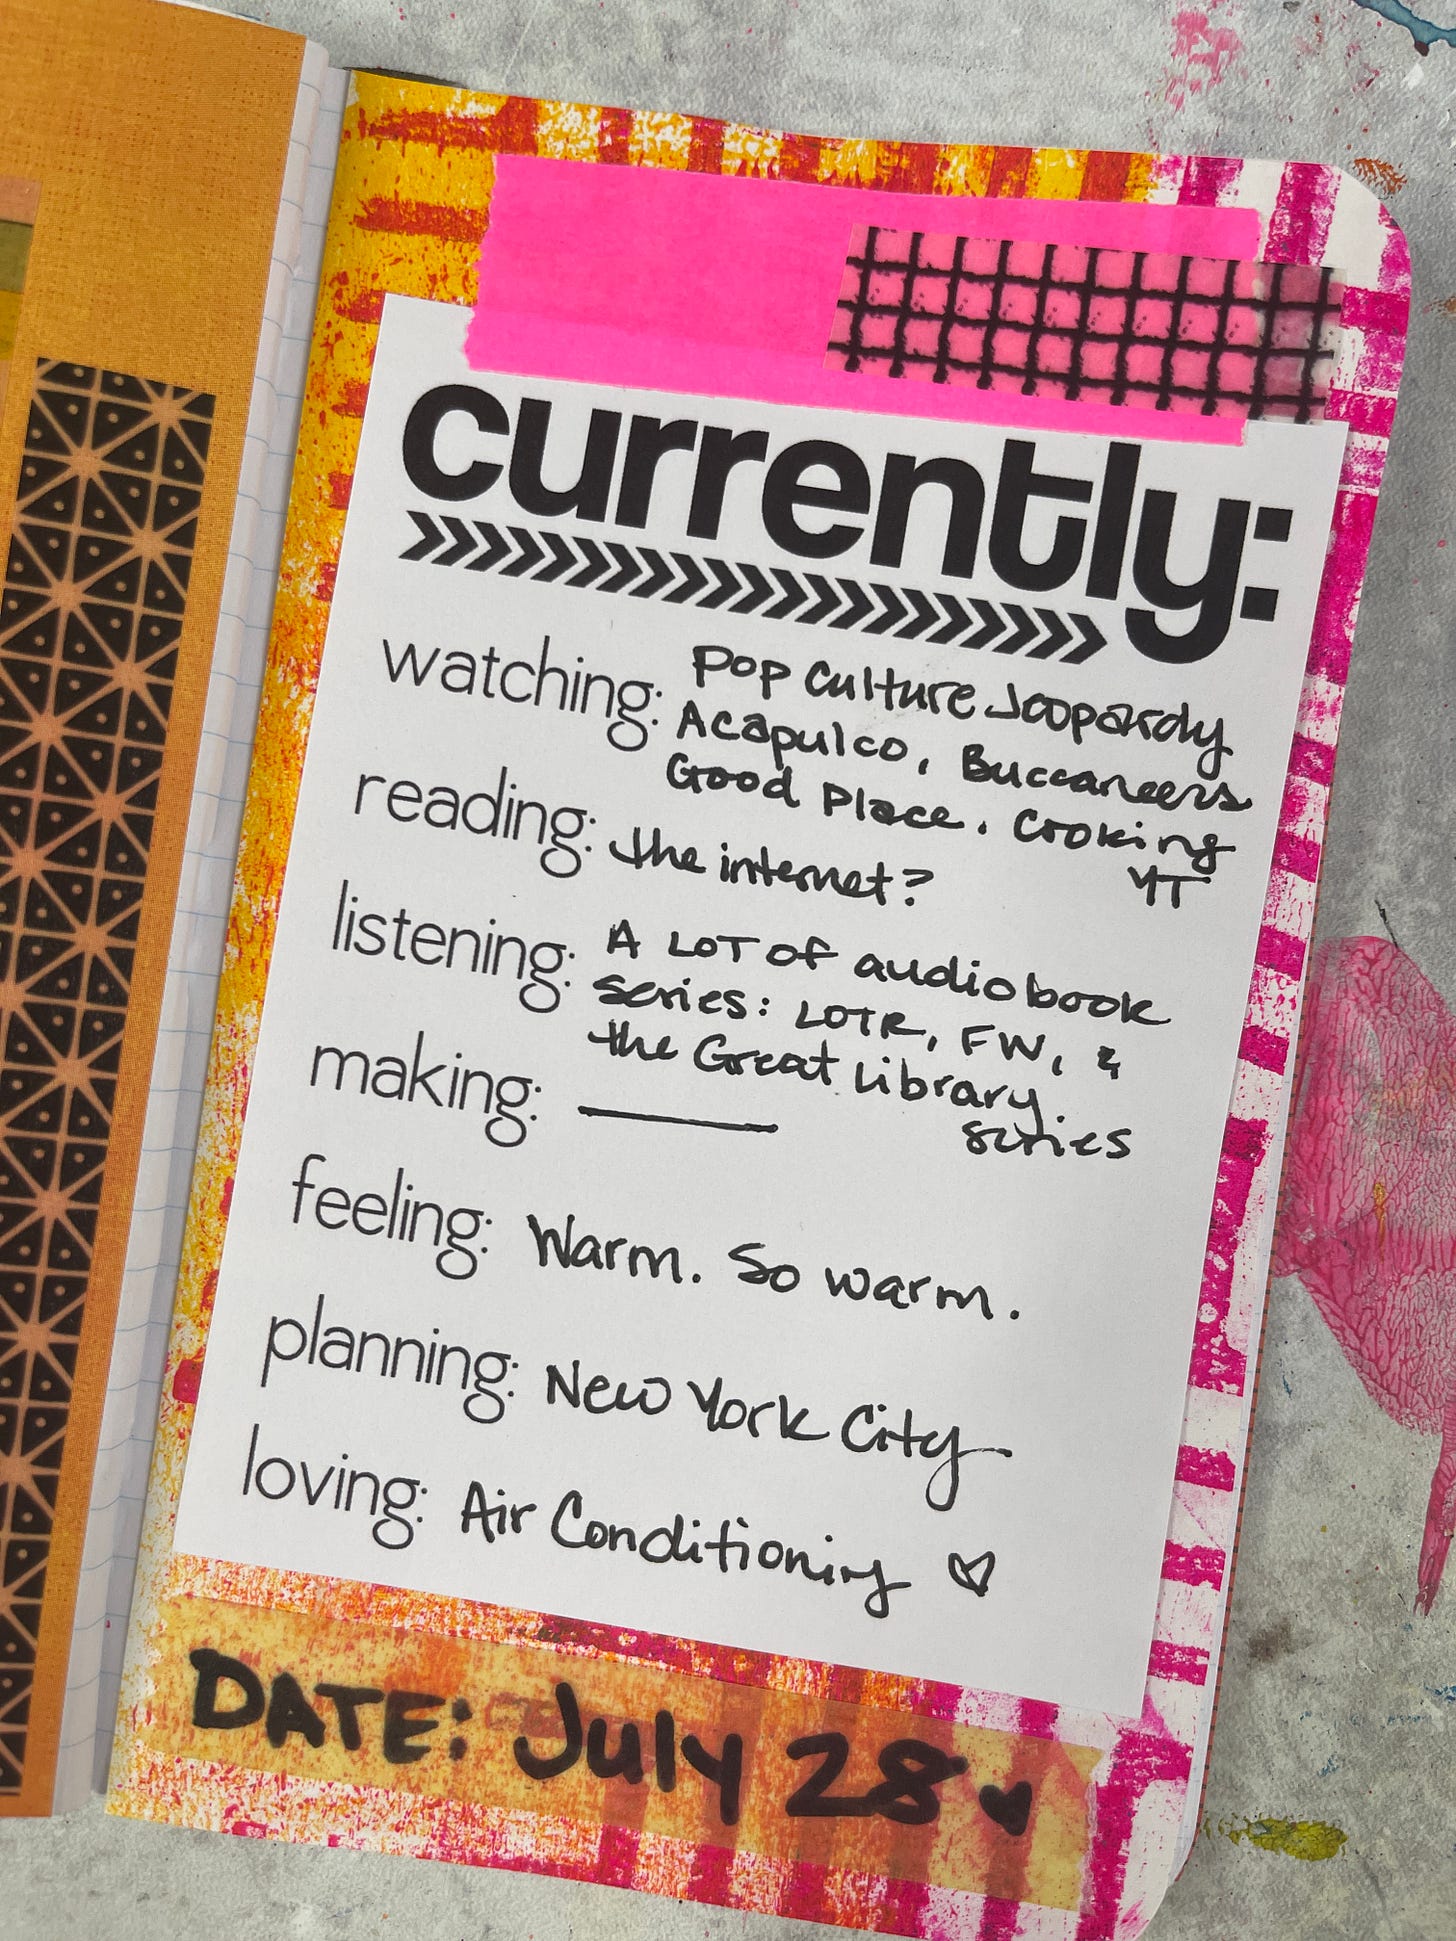 currently:
watching: Pop Culture Jeopardy
Acapulco, Buccaneers
Good Place. Cooking
YT
reading: the internet?
listening: A LOT OF audiobook
series: LOTR, FW, &
the Great Library.
series
making: ———
feeling: Warm. So warm.
planning: New York City
loving: Air Conditioning ♡
DATE: July 28 ♥